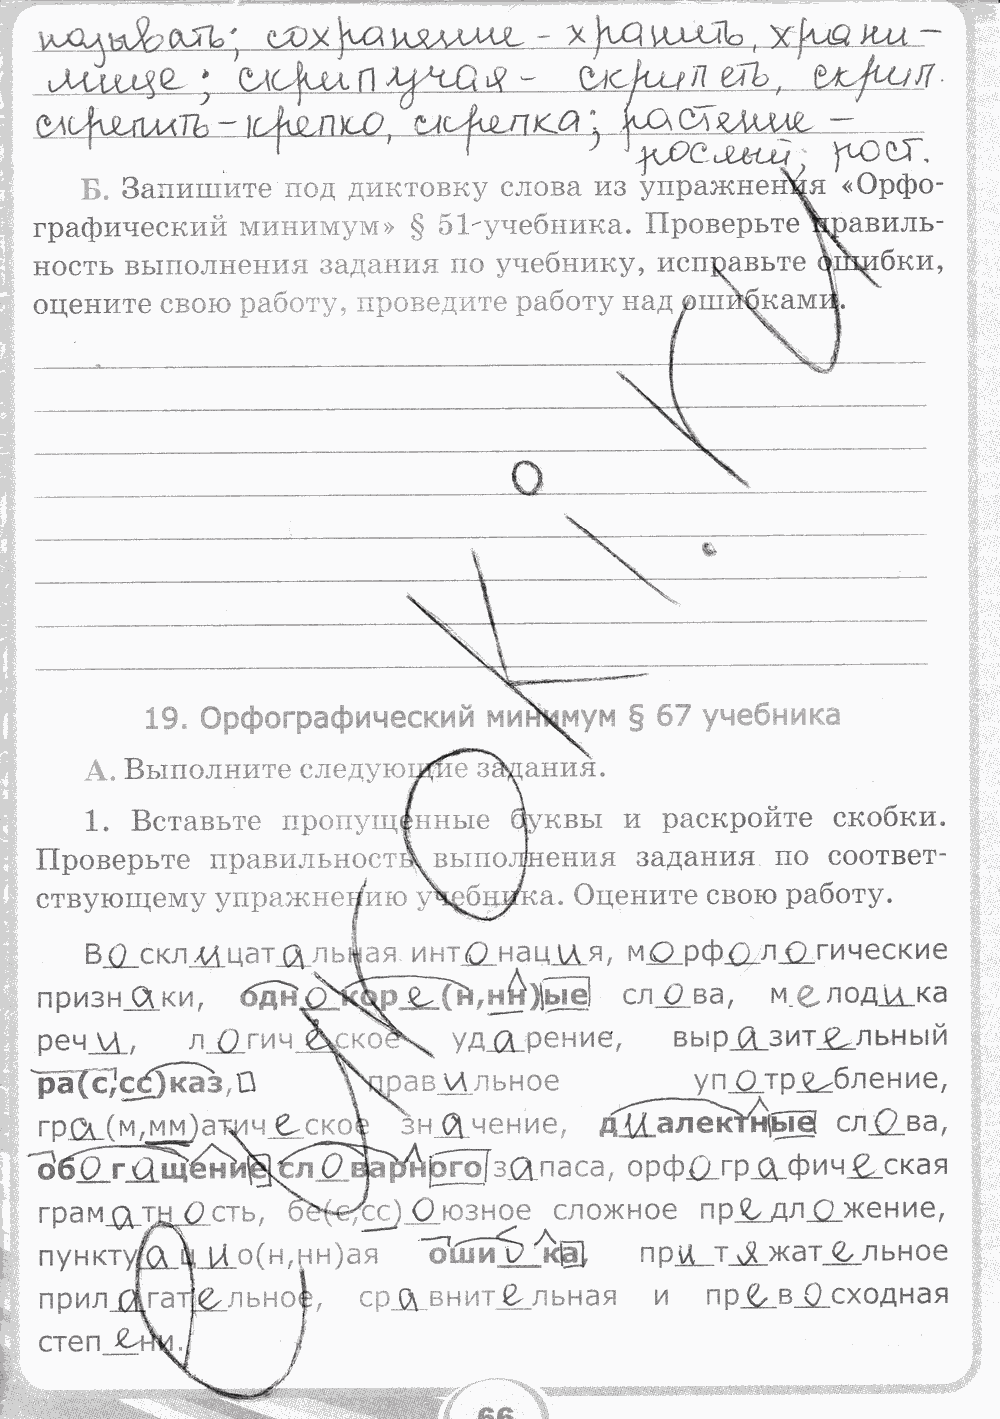 называть; сохранение – хранить, храни–
лище; скрипучая – скрипеть, скрип.
скрепить – крепко, скрепка; растение –
рослый; рост.
Б. Запишите под диктовку слова из упражнения «Орфо-
графический минимум» § 51 учебника. Проверьте правиль-
ность выполнения задания по учебнику, исправьте ошибки,
оцените свою работу, проведите работу над ошибками.
19. Орфографический минимум § 67 учебника
А. Выполните следующие задания.
1. Вставьте пропущенные буквы и раскройте скобки.
Проверьте правильность выполнения задания по соответ-
ствующему упражнению учебника. Оцените свою работу.
Восклицательная интонация, морфологические
признаки, однокоре(н,нн)ые слова, мелодика
речи, логическое ударение, выразительный
ра(с,сс)каз, правильное употребление,
гра(м,мм)атическое значение, диалектные слова,
обогащение словарного запаса, орфографическая
граматность, бе(с,сс)оюзное сложное предложение,
пунктуацио(н,нн)ая ошибка, притяжательное
прилагательное, сравнительная и превосходная
степени.
66